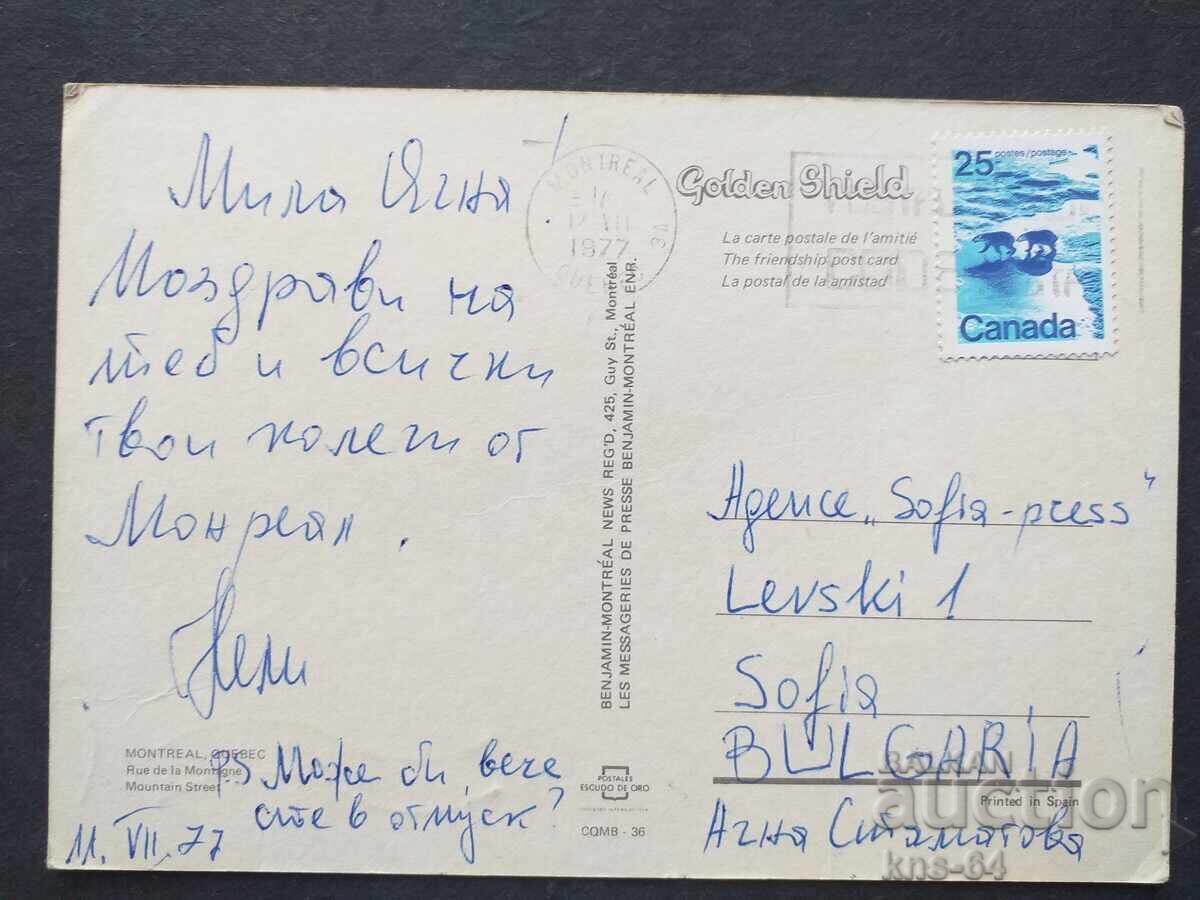 Мила Агна
Поздрави на
теб и всички
твои колеги от
Монреал.
Нели
PS Може би вече
сте в отпуск?
11. VII. 77
MONTREAL, QUEBEC
Rue de la Montagne
Mountain Street
MONTREAL
1977
Golden Shield
La carte postale de l'amitié
The friendship post card
La postal de la amistad
25 postes/postage
Canada
BENJAMIN-MONTRÉAL NEWS REG'D, 425, Guy St., Montréal
LES MESSAGERIES DE PRESSE BENJAMIN-MONTRÉAL ENR.
Agence „Sofia-press"
Levski 1
Sofia
BULGARIA
Агна Стаматова
POSTALES
ESCUDO DE ORO
CQMB - 36
Printed in Spain
BALKAN
auction
kns-64